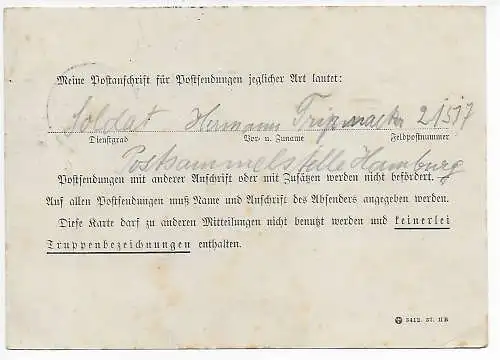 Meine Postanschrift für Postsendungen jeglicher Art lautet:
Soldat Hermann 21517
Dienstgrad Vor- u. Zuname Feldpostnummer
Postsammelstelle Hamburg
Postsendungen mit anderer Anschrift oder mit Zusätzen werden nicht befördert.
Auf allen Postsendungen muß Name und Anschrift des Absenders angegeben werden.
Diese Karte darf zu anderen Mitteilungen nicht benutzt werden und keinerlei
Truppenbezeichnungen enthalten.
5412. 37. II B